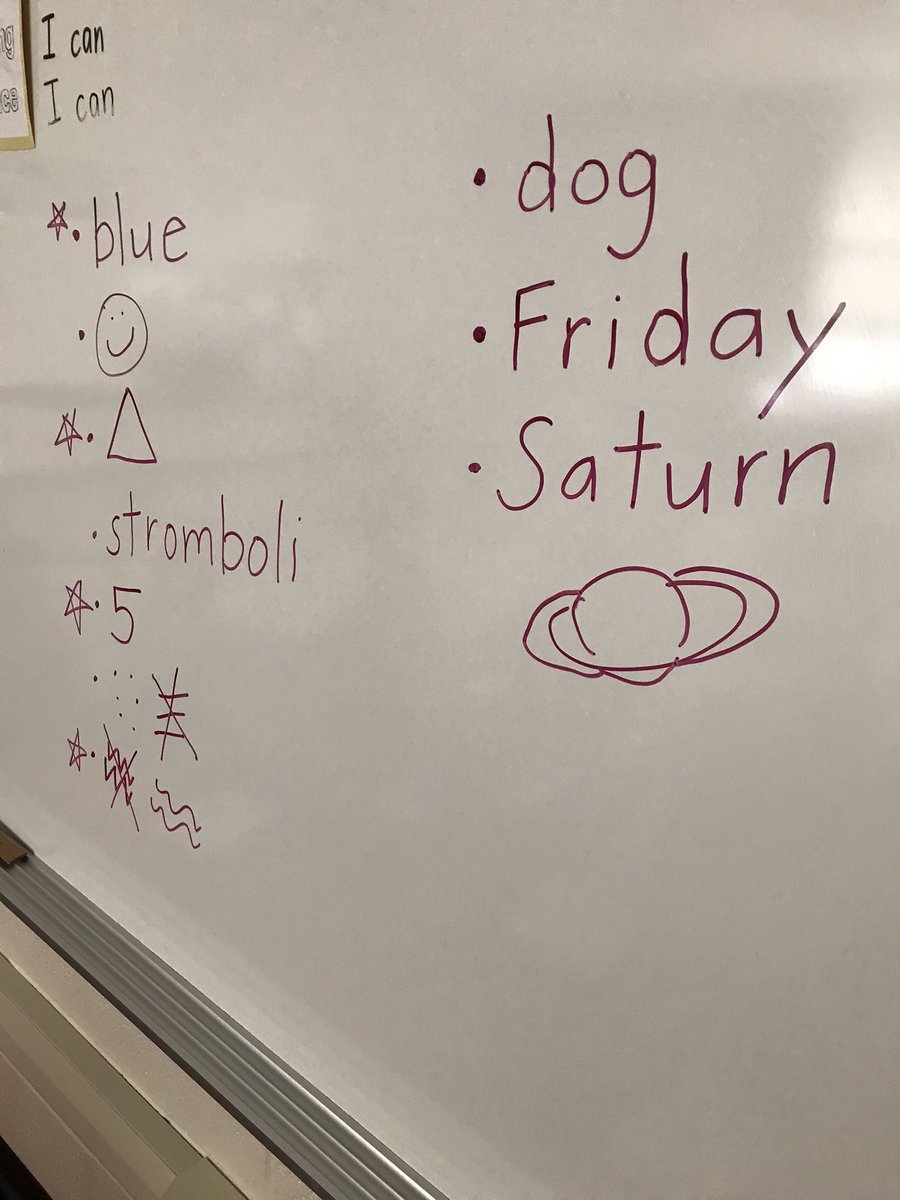 ng
ce
I can
I can
blue
stromboli
5
dog
Friday
Saturn